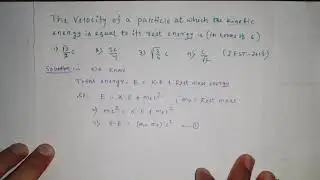 The Velocity of a particle at which the kinetic
energy is equal to its rest energy is (in terms of c)
1) √3/2 c 2) 3c/4 3) √3/4 c 4) c/√2 (JEST-2013)
Solution:- We know
Total energy. E = K.E + Rest mass energy
E = K.E + m₀c² , m₀ = Rest mass
⇒ mc² = K.E + m₀c²
⇒ K.E = (m-m₀)c² —①